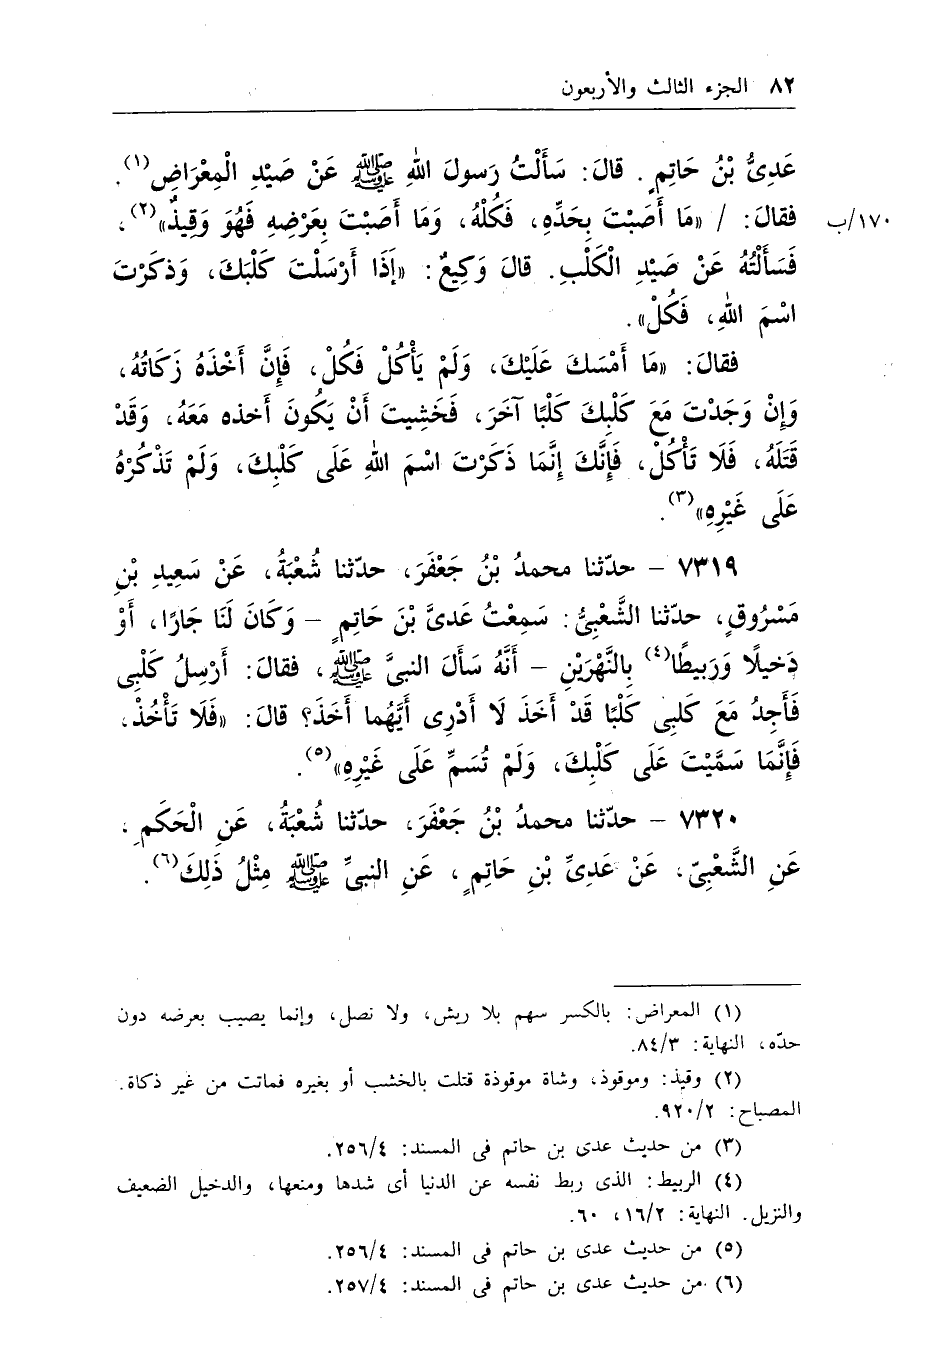 ٨٢ الجزء الثالث والأربعون
عَدِىُّ بْنُ حَاتِمٍ. قالَ: سَأَلْتُ رَسولَ اللهِ ﷺ عَنْ صَيْدِ الْمِعْرَاضِ(١).
فقالَ: / «مَا أَصَبْتَ بِحَدِّهِ، فَكُلْهُ، وَمَا أَصَبْتَ بِعَرْضِهِ فَهُوَ وَقِيذٌ»(٢)، ١٧٠/ب
فَسَأَلْتُهُ عَنْ صَيْدِ الْكَلْبِ. قالَ وَكِيعٌ: «إِذَا أَرْسَلْتَ كَلْبَكَ، وَذكَرْتَ
اسْمَ اللهِ، فَكُلْ».
فقالَ: «مَا أَمْسَكَ عَلَيْكَ، وَلَمْ يَأْكُلْ فَكُلْ، فَإِنَّ أَخْذَهُ زَكَاتُهُ،
وَإِنْ وَجَدْتَ مَعَ كَلْبِكَ كَلْبًا آخَرَ، فَخَشِيتَ أَنْ يَكُونَ أخذه مَعَهُ، وَقَدْ
قَتَلَهُ، فَلَا تَأْكُلْ، فَإِنَّكَ إِنَّمَا ذَكَرْتَ اسْمَ اللهِ عَلَى كَلْبِكَ، وَلَمْ تَذْكُرْهُ
عَلَى غَيْرِهِ»(٣).
٧٣١٩ – حدّثنا محمدُ بْنُ جَعْفَرَ، حدّثنا شُعْبَةُ، عَنْ سَعِيدِ بْنِ
مَسْرُوقٍ، حدّثنا الشَّعْبِىُّ: سَمِعْتُ عَدىَّ بْنَ حَاتِمٍ – وَكَانَ لَنَا جَارًا، أَوْ
دَخيلًا وَرَبيطًا(٤) بِالنَّهْرَيْنِ – أَنَّهُ سَأَلَ النبىَّ ﷺ، فقالَ: أَرْسِلُ كَلْبِى
فَأَجِدُ مَعَ كَلبِى كَلْبًا قَدْ أَخَذَ لَا أَدْرِى أَيَّهُما أَخَذَ؟ قالَ: «فَلَا تَأْخُذْ،
فَإِنَّمَا سَمَّيْتَ عَلَى كَلْبِكَ، وَلَمْ تُسَمِّ عَلَى غَيْرِهِ»(٥).
٧٣٢٠ – حدّثنا محمدُ بْنُ جَعْفَرَ، حدّثنا شُعْبَةُ، عَنِ الْحَكَمِ،
عَنِ الشَّعْبِىّ، عَنْ عَدِىِّ بْنِ حَاتِمٍ، عَنِ النبىِّ ﷺ مِثْلُ ذَلِكَ(٦).
(١) المعراض: بالكسر سهم بلا ريش، ولا نصل، وإنما يصيب بعرضه دون
حدّه، النهاية: ٨٤/٣.
(٢) وقيذ: وموقوذ، وشاة موقوذة قتلت بالخشب أو بغيره فماتت من غير ذكاة.
المصباح: ٩٢٠/٢.
(٣) من حديث عدى بن حاتم فى المسند: ٢٥٦/٤.
(٤) الربيط: الذى ربط نفسه عن الدنيا أى شدها ومنعها، والدخيل الضعيف
والنزيل. النهاية: ١٦/٢، ٦٠.
(٥) من حديث عدى بن حاتم فى المسند: ٢٥٦/٤.
(٦) من حديث عدى بن حاتم فى المسند: ٢٥٧/٤.